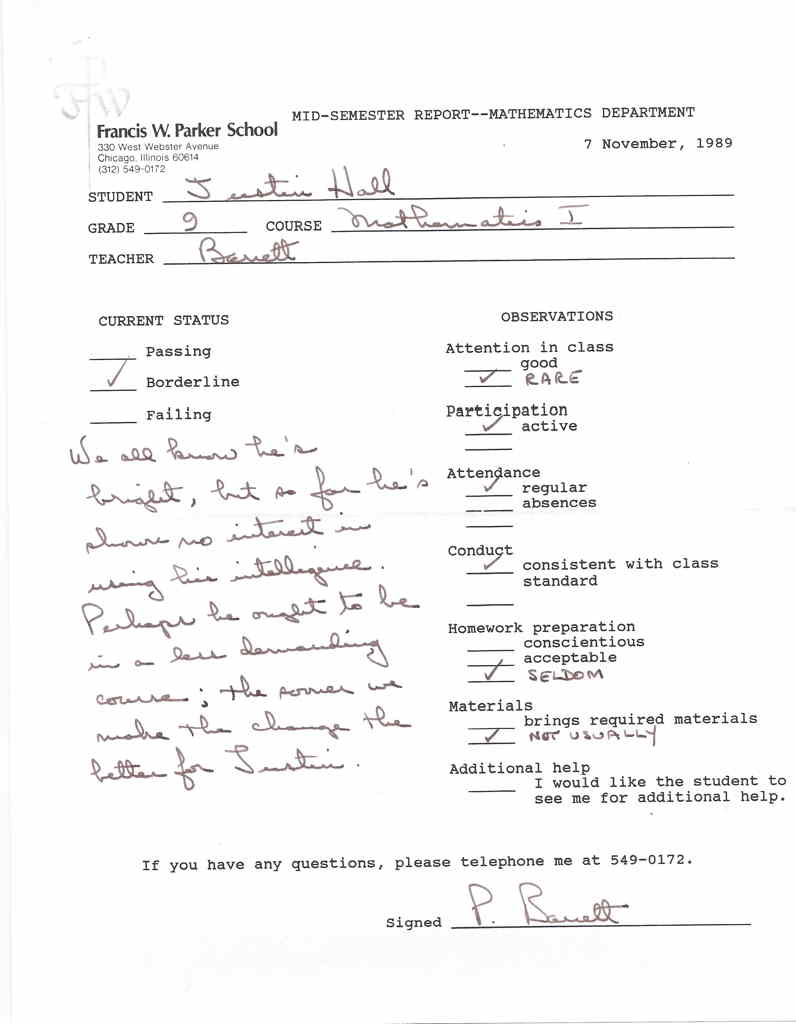 FW
MID-SEMESTER REPORT--MATHEMATICS DEPARTMENT
Francis W. Parker School
330 West Webster Avenue
Chicago, Illinois 60614
(312) 549-0172
7 November, 1989
STUDENT Justin Hall
GRADE 9 COURSE Mathematics I
TEACHER Barrett
CURRENT STATUS
Passing
✓ Borderline
Failing
We all know he's
bright, but so far he's
shown no interest in
using his intelligence.
Perhaps he ought to be
in a less demanding
course; the sooner we
make the change the
better for Justin.
OBSERVATIONS
Attention in class
good
✓ RARE
Participation
✓ active
Attendance
✓ regular
absences
Conduct
✓ consistent with class
standard
Homework preparation
conscientious
acceptable
✓ SELDOM
Materials
brings required materials
✓ NOT USUALLY
Additional help
I would like the student to
see me for additional help.
If you have any questions, please telephone me at 549-0172.
Signed P. Barrett